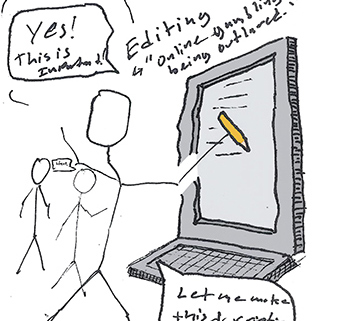 Yes!
This is
Important!
Editing
↳ "Online gambling
being outlawed."
Let me make
this